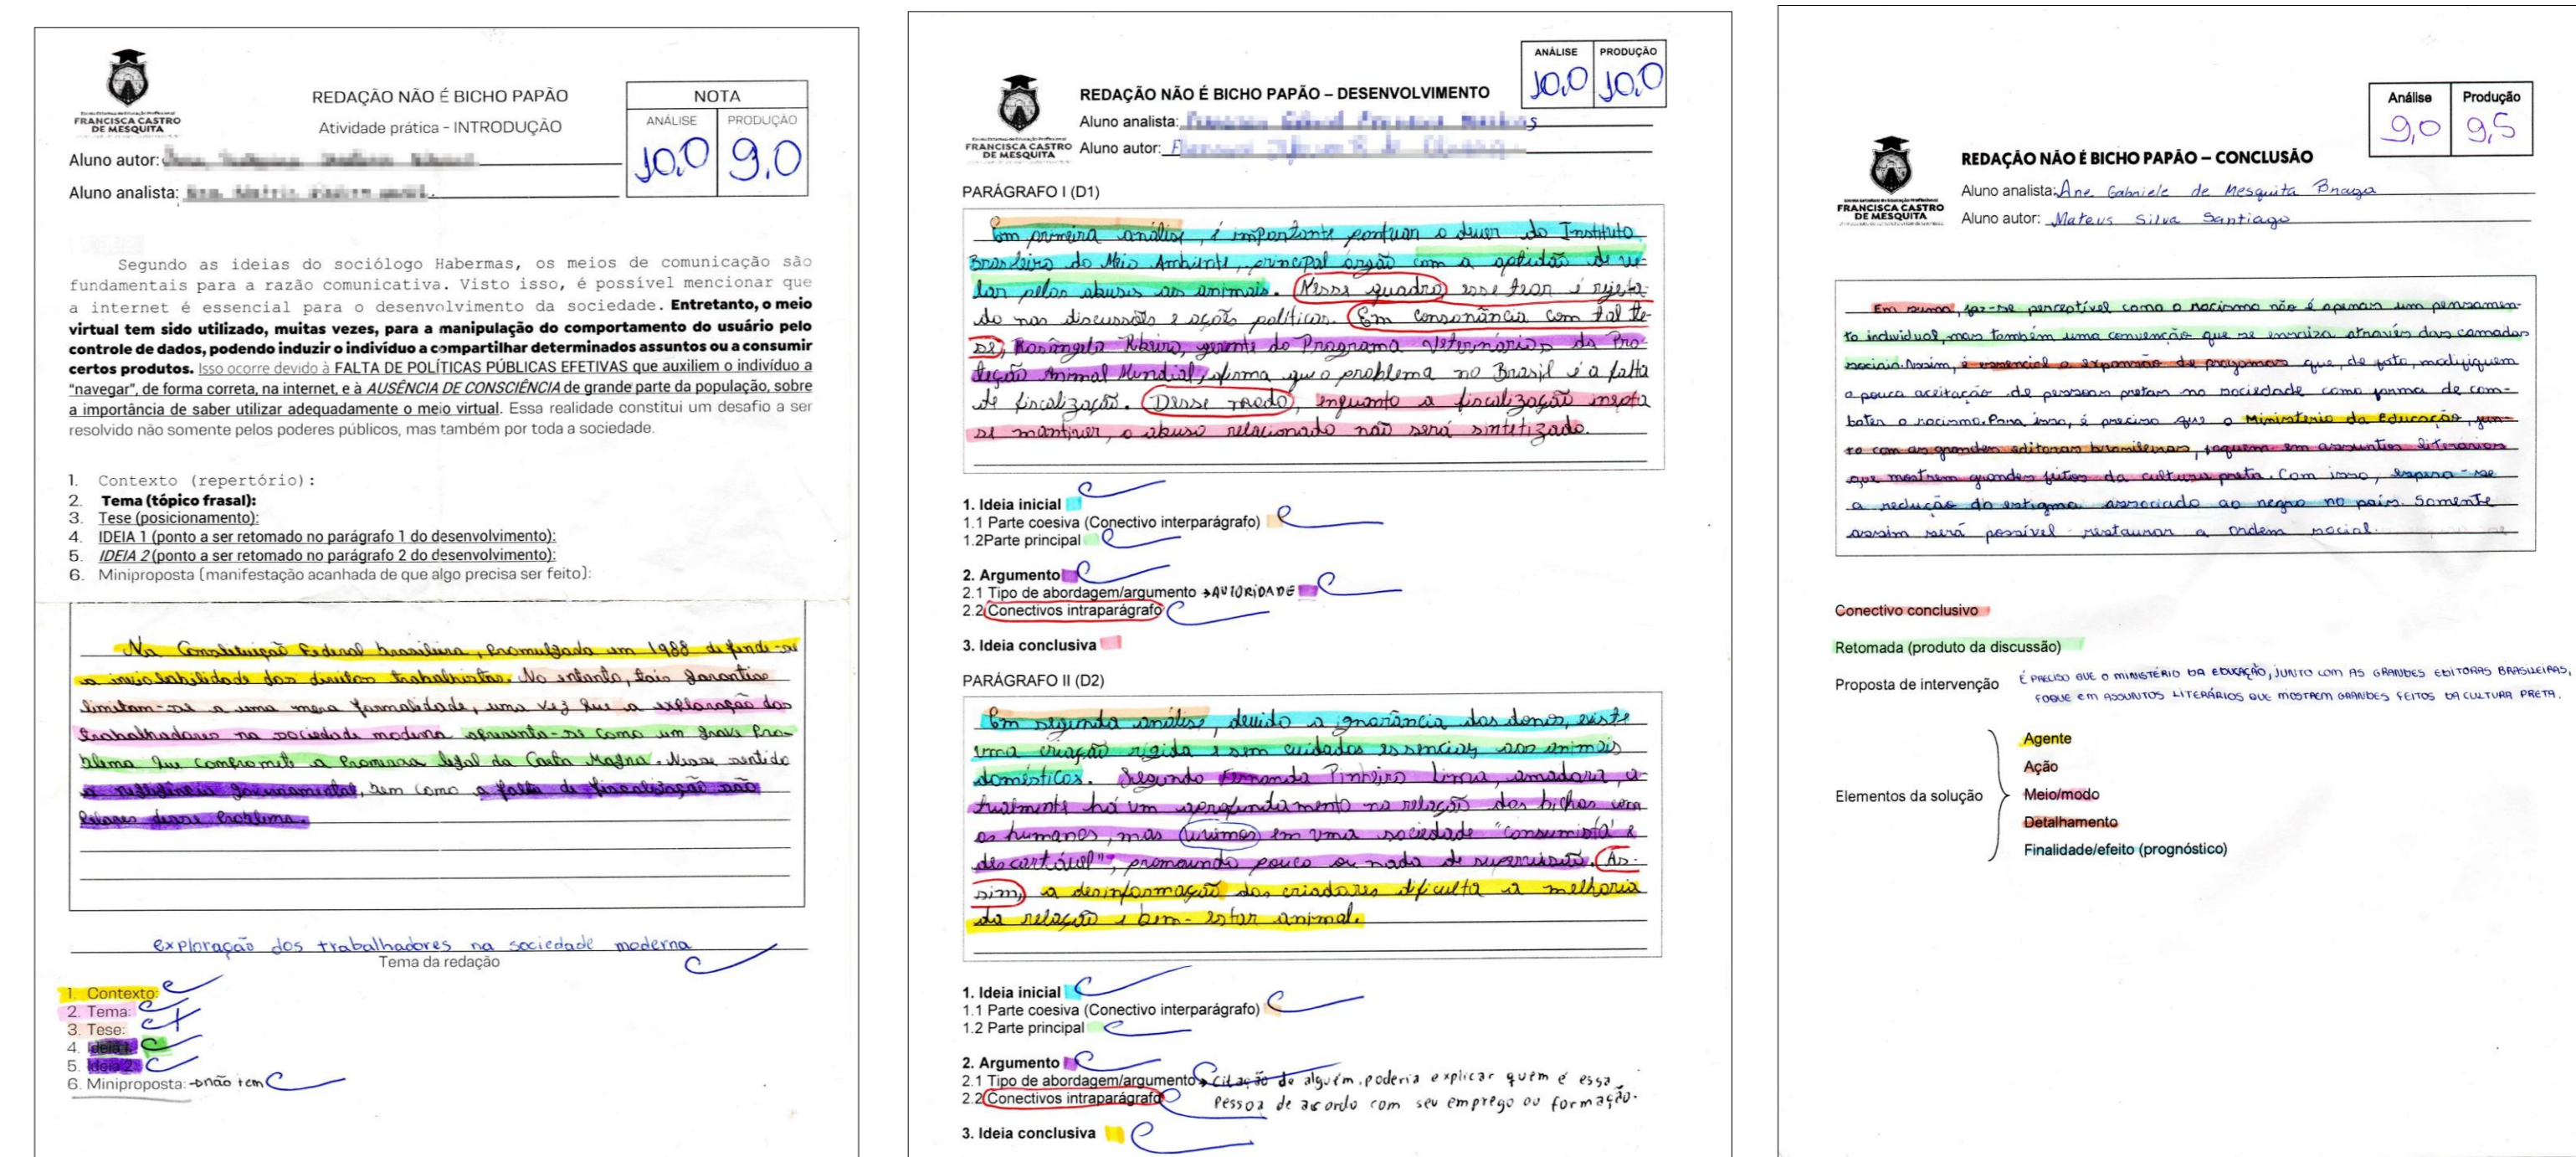 FRANCISCA CASTRO
DE MESQUITA
REDAÇÃO NÃO É BICHO PAPÃO
Atividade prática - INTRODUÇÃO
NOTA
ANÁLISE PRODUÇÃO
10,0 9,0
Aluno autor:
Aluno analista:
Segundo as ideias do sociólogo Habermas, os meios de comunicação são
fundamentais para a razão comunicativa. Visto isso, é possível mencionar que
a internet é essencial para o desenvolvimento da sociedade. Entretanto, o meio
virtual tem sido utilizado, muitas vezes, para a manipulação do comportamento do usuário pelo
controle de dados, podendo induzir o indivíduo a compartilhar determinados assuntos ou a consumir
certos produtos. Isso ocorre devido à FALTA DE POLÍTICAS PÚBLICAS EFETIVAS que auxiliem o indivíduo a
"navegar", de forma correta, na internet, e à AUSÊNCIA DE CONSCIÊNCIA de grande parte da população, sobre
a importância de saber utilizar adequadamente o meio virtual. Essa realidade constitui um desafio a ser
resolvido não somente pelos poderes públicos, mas também por toda a sociedade.
1. Contexto (repertório):
2. Tema (tópico frasal):
3. Tese (posicionamento):
4. IDEIA 1 (ponto a ser retomado no parágrafo 1 do desenvolvimento):
5. IDEIA 2 (ponto a ser retomado no parágrafo 2 do desenvolvimento):
6. Miniproposta (manifestação acanhada de que algo precisa ser feito):
Na Constituição Federal brasileira, Promulgada em 1988 defende-se
a inviolabilidade dos direitos trabalhistas. No entanto, tais garantias
limitam-se a uma mera formalidade, uma vez que a exploração dos
trabalhadores na sociedade moderna apresenta-se como um grave Pro-
blema que compromete a Promessa legal da Carta Magna. Nesse sentido
a negligência governamental, bem como a falta de fiscalização são
Pilares desse Problema.
exploração dos trabalhadores na sociedade moderna
Tema da redação
1. Contexto:
2. Tema:
3. Tese:
4. Ideia 1:
5. Ideia 2:
6. Miniproposta: não tem
FRANCISCA CASTRO
DE MESQUITA
REDAÇÃO NÃO É BICHO PAPÃO – DESENVOLVIMENTO
ANÁLISE PRODUÇÃO
10,0 10,0
Aluno analista:
Aluno autor:
PARÁGRAFO I (D1)
Em primeira análise, é importante pontuar o dever do Instituto
Brasileiro do Meio Ambiente, principal órgão com a aptidão de ve-
lar pelos abusos aos animais. Nesse quadro esse teor é rejeita-
do nas discussões e ações políticas. Em consonância com tal te-
se, Rosângela Ribeiro, gerente do Programa Veterinários da Pro-
teção Animal Mundial, afirma que o problema no Brasil é a falta
de fiscalização. Desse modo, enquanto a fiscalização inepta
se mantiver, o abuso relacionado não será sintetizado.
1. Ideia inicial
1.1 Parte coesiva (Conectivo interparágrafo)
1.2Parte principal
2. Argumento
2.1 Tipo de abordagem/argumento → AUTORIDADE
2.2 Conectivos intraparágrafo
3. Ideia conclusiva
PARÁGRAFO II (D2)
Em segunda análise, devido a ignorância dos donos, existe
uma criação rígida e sem cuidados essenciais aos animais
domésticos. Segundo Fernanda Pinheiro Lima, amadora, a-
tualmente há um aprofundamento na relação dos bichos com
os humanos, mas vivemos em uma sociedade "consumista e
descartável", promovendo pouco ou nada de supervisão. As-
sim, a desinformação dos criadores dificulta a melhoria
da relação e bem-estar animal.
1. Ideia inicial
1.1 Parte coesiva (Conectivo interparágrafo)
1.2 Parte principal
2. Argumento
2.1 Tipo de abordagem/argumento → citação de alguém, poderia explicar quem é essa
2.2 Conectivos intraparágrafo pessoa de acordo com seu emprego ou formação.
3. Ideia conclusiva
FRANCISCA CASTRO
DE MESQUITA
REDAÇÃO NÃO É BICHO PAPÃO – CONCLUSÃO
Análise Produção
9,0 9,5
Aluno analista: Ane Gabriele de Mesquita Braga
Aluno autor: Mateus Silva Santiago
Em suma, faz-se perceptível como o racismo não é apenas um pensamen-
to individual, mas também uma convenção que se enraiza através das camadas
sociais. Assim, é essencial a expansão de programas que, de fato, modifiquem
a pouca aceitação de pessoas pretas na sociedade como forma de com-
bater o racismo. Para isso, é preciso que o Ministério da Educação, jun-
to com as grandes editoras brasileiras, foquem em assuntos literários
que mostrem grandes feitos da cultura preta. Com isso, espera-se
a redução do estigma associado ao negro no país. Somente
assim será possível restaurar a ordem social.
Conectivo conclusivo
Retomada (produto da discussão)
Proposta de intervenção É PRECISO QUE O MINISTÉRIO DA EDUCAÇÃO, JUNTO COM AS GRANDES EDITORAS BRASILEIRAS,
FOQUE EM ASSUNTOS LITERÁRIOS QUE MOSTREM GRANDES FEITOS DA CULTURA PRETA.
Elementos da solução
Agente
Ação
Meio/modo
Detalhamento
Finalidade/efeito (prognóstico)